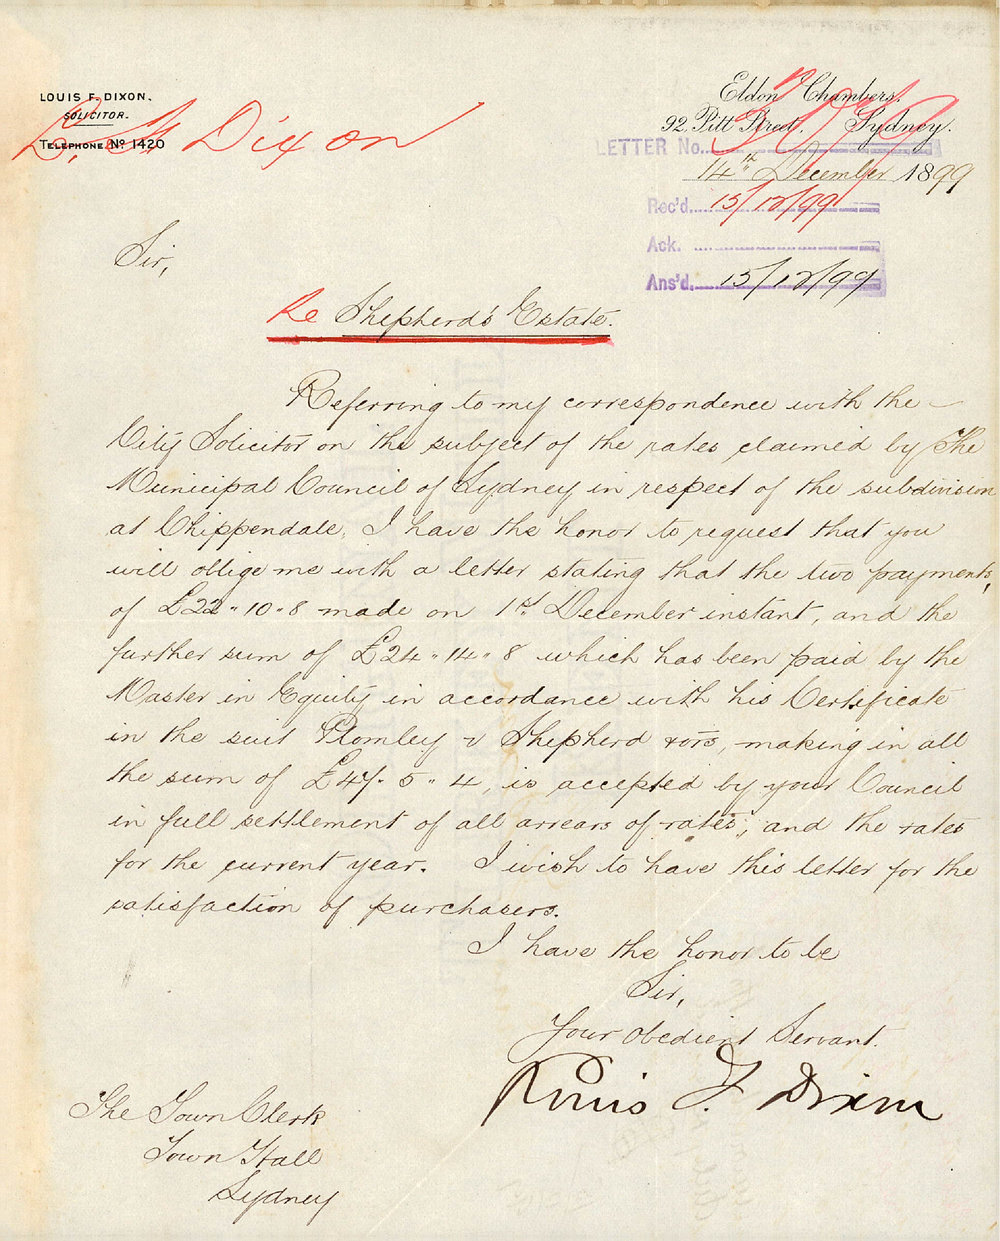 LOUIS F. DIXON.
SOLICITOR.
TELEPHONE Nº 1420
Dixon
Eldon Chambers,
92, Pitt Street, Sydney.
LETTER No.
14th December 1899
Rec'd. 15/12/99
Ack.
Ans'd. 15/12/99
Sir,
Re Shepherd's Estate.
Referring to my correspondence with the
City Solicitor on the subject of the rates claimed by The
Municipal Council of Sydney in respect of the subdivision
at Chippendale, I have the honor to request that you
will oblige me with a letter stating that the two payments,
of £22"10"8 made on 1st December instant, and the
further sum of £24"14"8 which has been paid by the
Master in Equity in accordance with his Certificate
in the suit Plomley v Shepherd & ors, making in all
the sum of £47"5"4, is accepted by your Council
in full settlement of all arrears of rates, and the rates
for the current year. I wish to have this letter for the
satisfaction of purchasers.
I have the honor to be
Sir,
Your Obedient Servant.
Louis F. Dixon
The Town Clerk
Town Hall
Sydney